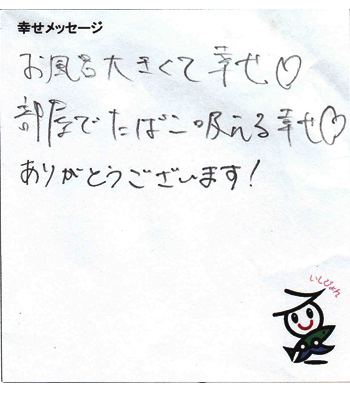 幸せメッセージ
お風呂大きくて幸せ♡
部屋でたばこ吸える幸せ♡
ありがとうございます!